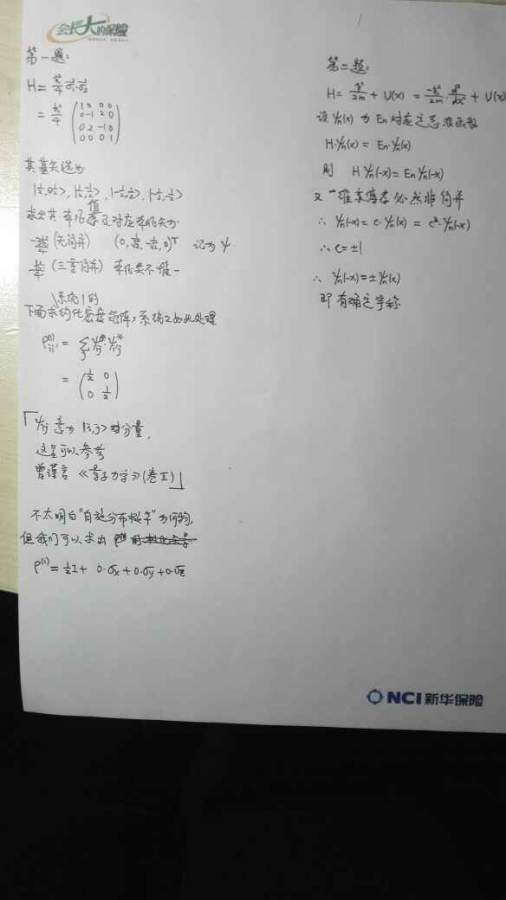 会长大的保险
第一题:
H = ħ²/4 σ₁·σ₂
= ħ²/4 (1 0 0 0
0 -1 2 0
0 2 -1 0
0 0 0 1)
其基矢选为
|½,½>, |½,-½>, |-½,½>, |-½,-½>
求出其本征值及对应本征矢为
(无简并) (0, 1/√2, -1/√2, 0)ᵀ 记为ψ
(三重简并) 本征矢不唯一
下面求约化密度矩阵, 系统1的, 系统2如此处理
= (½ 0
0 ½)
「ψij 意为 |i,j> 的分量,
这里可以参考
曾谨言《量子力学》(卷II)」
不太明白"自旋分布概率"为何物,
但我们可以求出
ρ⁽¹⁾ = ½I + 0·σx + 0·σy + 0·σz
第二题:
H = p²/2m + U(x) = -ħ²/2m d²/dx² + U(x)
设ψn(x) 为 En 对应之态函数
H·ψn(x) = En·ψn(x)
则 H ψn(-x) = En ψn(-x)
又一维束缚态必然非简并
∴ ψn(-x) = c·ψn(x) = c²·ψn(-x)
∴ c = ±1
∴ ψn(-x) = ±ψn(x)
即有确定宇称
NCI 新华保险